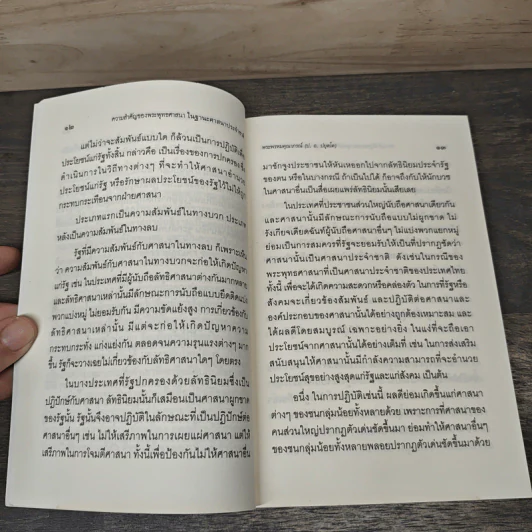 ๑๒
ความสำคัญของพระพุทธศาสนา ในฐานะศาสนาประจำชาติ
แต่ไม่ว่าจะสัมพันธ์แบบใด ก็ล้วนเป็นการปฏิบัติเพื่อ
ประโยชน์แก่รัฐทั้งสิ้น กล่าวคือ เป็นเรื่องของการปกครองซึ่ง
ดำเนินการในวิถีทางต่างๆ ที่จะทำให้ศาสนาอำนวย
ประโยชน์แก่รัฐ หรือรักษาผลประโยชน์ของรัฐไว้ไม่ให้ถูก
กระทบกระเทือนจากฝ่ายศาสนา
ประเภทแรกเป็นความสัมพันธ์ในทางบวก ประเภท
หลังเป็นความสัมพันธ์ในทางลบ
รัฐที่มีความสัมพันธ์กับศาสนาในทางลบ ก็เพราะเห็น
ว่า ความสัมพันธ์กับศาสนาในทางบวกจะก่อให้เกิดปัญหา
แก่รัฐ เช่น ในประเทศที่มีผู้นับถือลัทธิศาสนาต่างกันมากหลาย
และลัทธิศาสนาเหล่านั้นมีลักษณะการนับถือแบบยึดติดแบ่ง
พวกแบ่งหมู่ ไม่ยอมรับกัน มีความขัดแย้งสูง การเกี่ยวข้องกับ
ลัทธิศาสนาเหล่านั้น มีแต่จะก่อให้เกิดปัญหาความ
กระทบกระทั่ง แก่งแย่งกัน ตลอดจนความรุนแรงต่างๆ มาก
ขึ้น รัฐก็จะวางเฉยไม่เกี่ยวข้องกับลัทธิศาสนาใดๆ โดยตรง
ในบางประเทศที่รัฐปกครองด้วยลัทธินิยมซึ่งเป็น
ปฏิปักษ์กับศาสนา ลัทธินิยมนั้นก็เสมือนเป็นศาสนาผูกขาด
ของรัฐนั้น รัฐนั้นจึงอาจปฏิบัติในลักษณะที่เป็นปฏิปักษ์ต่อ
ศาสนาอื่นๆ เช่น ไม่ให้เสรีภาพในการเผยแผ่ศาสนา แต่ให้
เสรีภาพในการโจมตีศาสนา ทั้งนี้เพื่อป้องกันไม่ให้ศาสนาอื่น
พระพรหมคุณาภรณ์ (ป. อ. ปยุตฺโต)
๑๓
มาชักจูงประชาชนให้หันเหออกไปจากลัทธินิยมประจำรัฐ
ของตน หรือในบางกรณี ถ้าเป็นไปได้ ก็อาจถึงกับให้นักบวช
ในศาสนาอื่นเป็นสื่อเผยแพร่ลัทธินิยมนั้นเสียเลย
ในประเทศที่ประชาชนส่วนใหญ่นับถือศาสนาเดียวกัน
และศาสนานั้นมีลักษณะการนับถือแบบไม่ผูกขาด ไม่
รังเกียจเดียดฉันท์ผู้นับถือศาสนาอื่นๆ ไม่แบ่งพวกแยกหมู่
ย่อมเป็นการสมควรที่รัฐจะยอมรับให้เป็นที่ปรากฏชัดว่า
ศาสนานั้นเป็นศาสนาประจำชาติ ดังเช่นในกรณีของ
พระพุทธศาสนาที่เป็นศาสนาประจำชาติของประเทศไทย
ทั้งนี้ เพื่อจะได้เกิดความสะดวกหรือคล่องตัว ในการที่รัฐหรือ
สังคมจะเกี่ยวข้องสัมพันธ์ และปฏิบัติต่อศาสนาและ
องค์ประกอบของศาสนานั้นได้อย่างถูกต้องเหมาะสม และ
ได้ผลดีโดยสมบูรณ์ เฉพาะอย่างยิ่ง ในแง่ที่จะถือเอา
ประโยชน์จากศาสนานั้นได้อย่างเต็มที่ เช่น ในการส่งเสริม
สนับสนุนให้ศาสนานั้นมีกำลังความสามารถที่จะอำนวย
ประโยชน์สุขอย่างสูงสุดแก่รัฐและแก่สังคม เป็นต้น
อนึ่ง ในการปฏิบัติเช่นนี้ ผลดีย่อมเกิดขึ้นแก่ศาสนา
ต่างๆ ของชนกลุ่มน้อยทั้งหลายด้วย เพราะการที่ศาสนาของ
คนส่วนใหญ่ปรากฏตัวเด่นชัดขึ้นมา ย่อมทำให้ศาสนาอื่นๆ
ของชนกลุ่มน้อยทั้งหลายพลอยปรากฏตัวเด่นชัดขึ้นมาด้วย